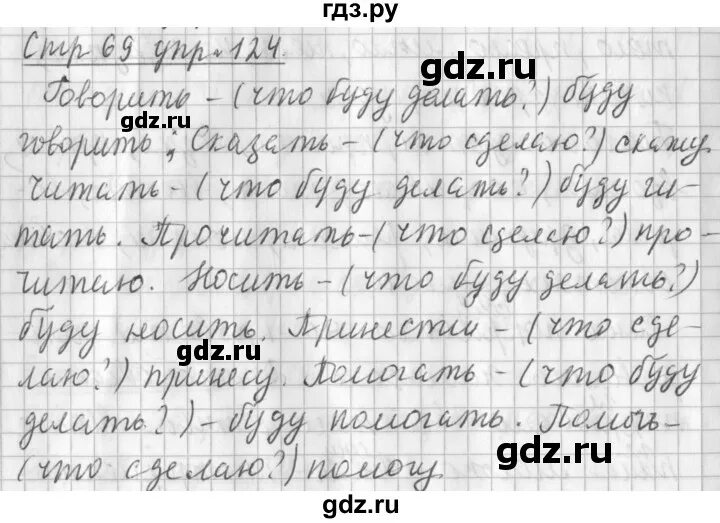 гдз.ру
Стр 69 упр. 124.
Говорить – (что буду делать?) буду
gdz.ru
говорить; Сказать – (что сделаю?) скажу.
Читать – (что буду делать?) буду чи-
тать. Прочитать – (что сделаю?) про-
читаю. Носить – (что буду делать?)
буду носить. Принести – (что сде-
gdz.ru
лаю?) принесу. Помогать – (что буду
делать?) – буду помогать. Помочь –
(что сделаю?) помогу
gdz.ru
gdz.ru